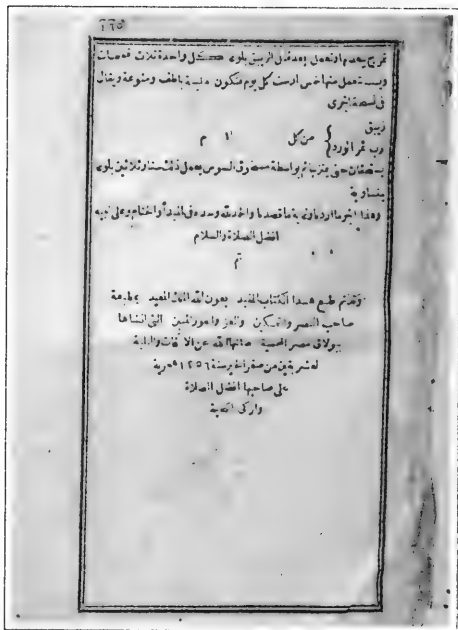 ١٦٥
تمزج بعدم او تعمل بعد قال الزيبق بلوى كل واحدة ثلاث قمحات
ويستعمل منها خمس او ست كل يوم فتكون ملينة بلطف ومنوعة ويقال
فى نسخة اخرى
زيبق
رب نمر الورد } من كل ١ م
يسحقان حتى بواسطة مسحوق السوس يعمل ذلك ستا وثلاثين بلوى
متساوية
وهذا آخر ما اردنا وغاية ما قصدنا والحمد لله وحده فى المبدأ والختام وعلى نبيه
افضل الصلاة والسلام
تم
وقد تم طبع هذا الكتاب المفيد بعون الله الملك المعيد بمطبعة
صاحب النصر والتمكين والعز والفوز المبين التى انشاها
ببولاق مصر المحمية صانها الله عن الآفات والبلية
لعشر بقين من صفر الخير سنة ١٢٥٦ هجرية
على صاحبها افضل الصلاة
وازكى التحية